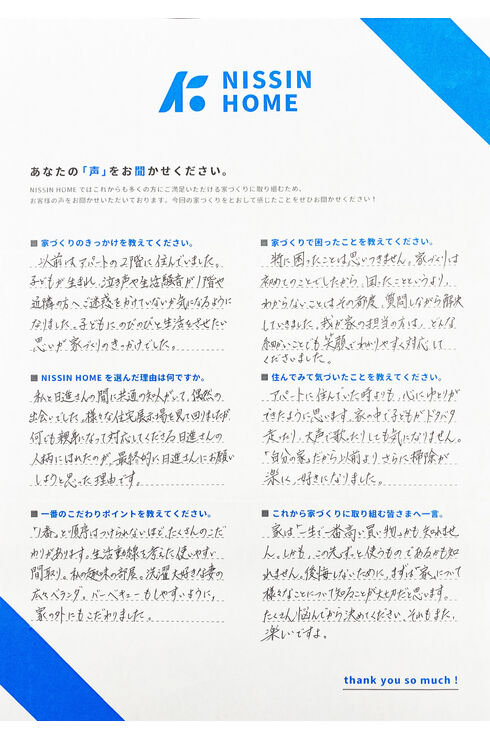 NISSIN
HOME
あなたの「声」をお聞かせください。
NISSIN HOME ではこれからも多くの方にご満足いただける家づくりに取り組むため、
お客様の声をお聞かせいただいております。今回の家づくりをとおして感じたことをぜひお聞かせください！
■ 家づくりのきっかけを教えてください。
以前はアパートの2階に住んでいました。
子どもが生まれ、泣き声や生活騒音が1階や
近隣の方へご迷惑をかけていないか気になるように
なりました。子どもにのびのびと生活をさせたい
思いが家づくりのきっかけでした。
■ NISSIN HOME を選んだ理由は何ですか。
私と日進さんの間に共通の知人がいて、偶然の
出会いでした。様々な住宅展示場を見て回りましたが、
何でも親身になって対応してくださる日進さんの
人柄にほれたのが、最終的に日進さんにお願い
しようと思った理由です。
■ 一番のこだわりポイントを教えてください。
「1番」と順序はつけられないほど、たくさんのこだ
わりがあります。生活動線も考えた使いやすい
間取り。私の趣味の部屋。洗濯大好きな妻の
広々ベランダ。バーベキューもしやすいように、
家の外にもこだわりました。
■ 家づくりで困ったことを教えてください。
特に困ったことは思いつきません。家づくりは
初めてのことでしたから、困ったことというより、
わからないことはその都度、質問しながら解決
していきました。我が家の担当の方は、どんな
細かいことでも笑顔でわかりやすく対応して
くださいました。
■ 住んでみて気づいたことを教えてください。
アパートに住んでいた時よりも、心にゆとりが
できたように思います。家の中で子どもがドタバタ
走ったり、大声で歌ったりしても気になりません。
「自分の家」だから以前よりさらに掃除が
楽しく、好きになりました。
■ これから家づくりに取り組む皆さまへ一言。
家は「一生で一番高い買い物」かも知れませ
ん。しかも、この先ずっと使うものであるかも知
れません。後悔しないために、まずは「家」について
様々なことについて知ることが大切だと思います。
たくさん悩んでから決めてください。それもまた、
楽しいですよ。
thank you so much !